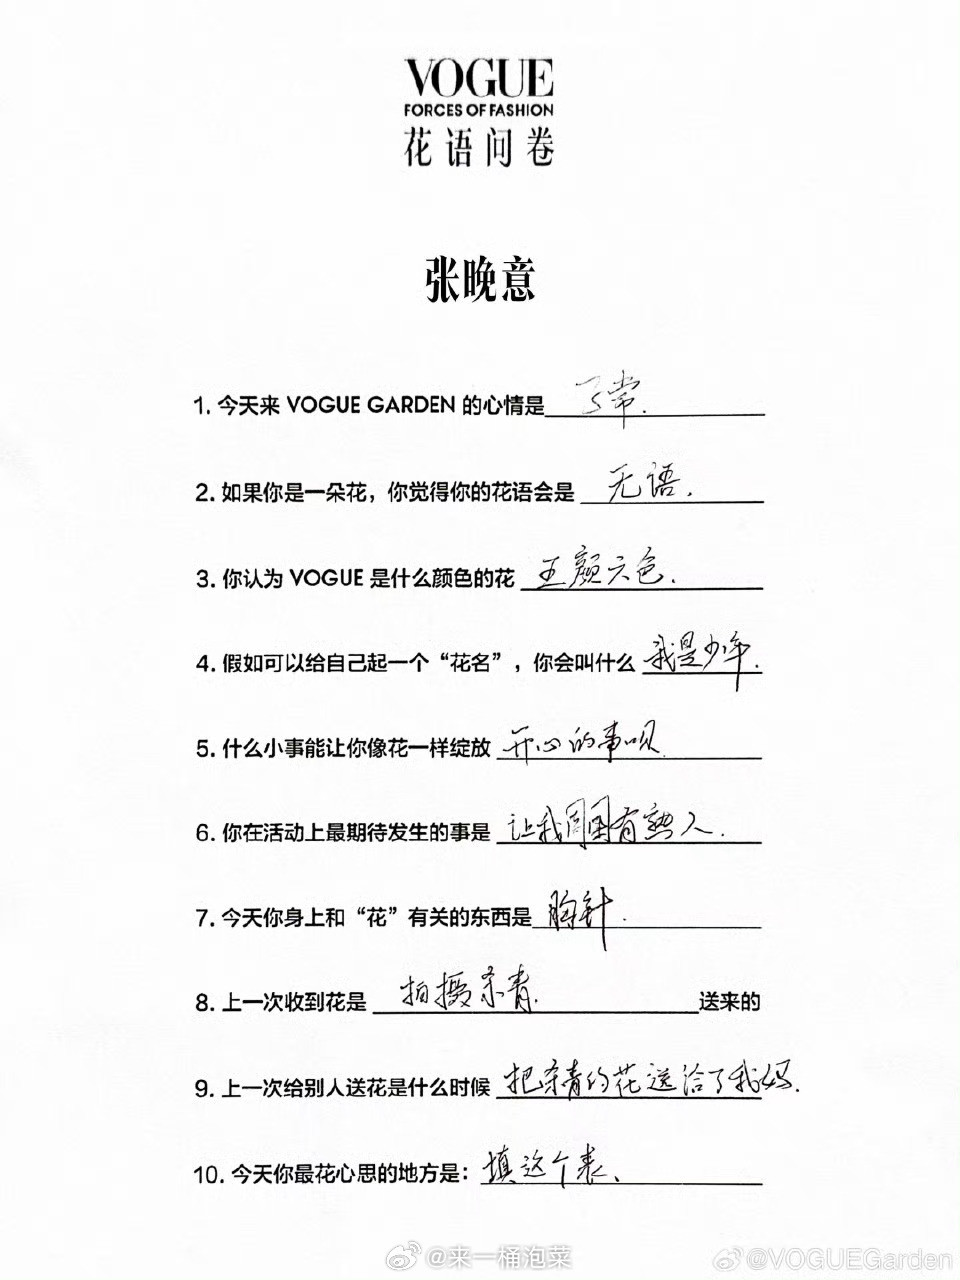 VOGUE
FORCES OF FASHION
花语问卷
张晚意
1. 今天来 VOGUE GARDEN 的心情是 常.
2. 如果你是一朵花，你觉得你的花语会是 无语.
3. 你认为 VOGUE 是什么颜色的花 五颜六色.
4. 假如可以给自己起一个“花名”，你会叫什么 我是少年.
5. 什么小事能让你像花一样绽放 开心的事呗
6. 你在活动上最期待发生的事是 让我周围有熟人.
7. 今天你身上和“花”有关的东西是 胸针.
8. 上一次收到花是 拍摄杀青. 送来的
9. 上一次给别人送花是什么时候 把杀青的花送给了我妈.
10. 今天你最花心思的地方是： 填这个表、
@来一桶泡菜
@VOGUEGarden